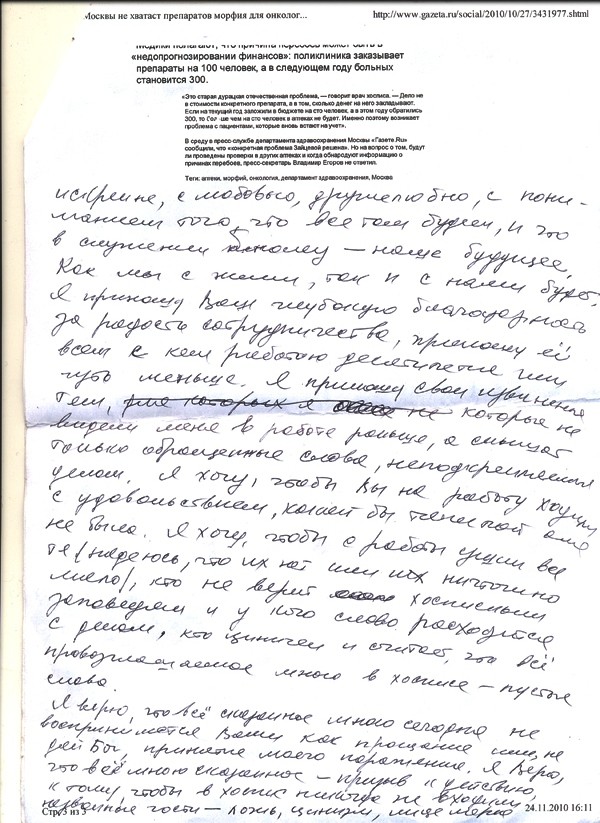 Москвы не хватаст препаратов морфия для онколог...
http://www.gazeta.ru/social/2010/10/27/3431977.shtml
медики полагают, что причина перебоев может быть в
«недопрогнозировании финансов»: поликлиника заказывает
препараты на 100 человек, а в следующем году больных
становится 300.
«Это старая дурацкая отечественная проблема, — говорит врач хосписа. — Дело не
в стоимости конкретного препарата, а в том, сколько денег на него закладывают.
Если на текущий год заложили в бюджете на сто человек. а в этом году обратились
300, то бол ше чем на сто человек в аптеках не будет. Именно поэтому возникает
проблема с пациентами, которые вновь встают на учет».
В среду в пресс-службе департамента здравоохранения Москвы «Газете.Ru»
сообщили, что «конкретная проблема Зайцевой решена». Но на вопрос о том, будут
ли проведены проверки в других аптеках и когда обнародуют информацию о
причинах перебоев, пресс-секретарь Владимир Егоров не ответил.
Теги: аптеки, морфий, онкология, департамент здравоохранения, Москва
искренне, с любовью, дружелюбно, с пони-
манием того, что все там будем, и что
в служении больному — наше будущее,
Как мы с ними, так и с нами будет.
Я приношу Вам глубокую благодарность
за радость сотрудничества, приношу её
всем с кем работаю десятилетие или
чуть меньше. Я приношу свои извинения
тем, для которых я не которые не
видели меня в работе раньше, а слышат
только обращенные слова, неподкрепленные
делом. Я хочу, чтобы Вы на работу ходили
с удовольствием, какой бы тяжелой она
не была. Я хочу, чтобы с работы ушли все
те (надеюсь, что их нет или их ничтожно
мало), кто не верит хосписным
заповедям и у кого слово расходится
с делом, кто циничен и считает, что всё
провозглашаемое мною в хосписе — пустые
слова.
Я верю, что всё сказанное мною сегодня не
воспринимается Вами как прощание или, не
дай Бог, принятие моего поражения. Я верю,
что всё мною сказанное — призыв к действию,
к тому, чтобы в хоспис никогда не входили
незваные гости — ложь, цинизм, лицемерие
Стр. 3 из 3
24.11.2010 16:11